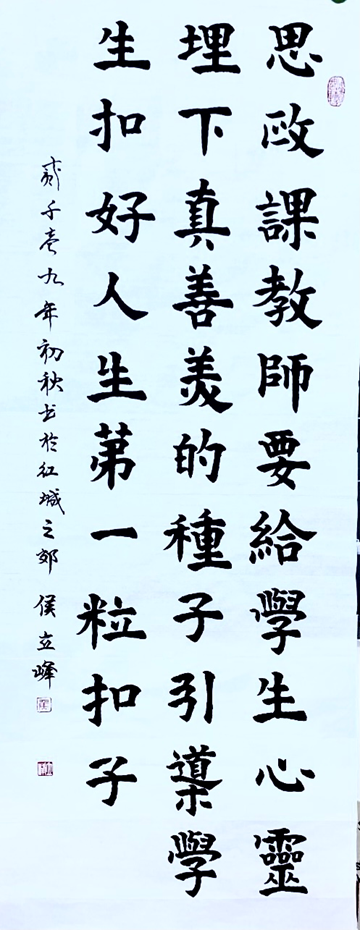 思政課教師要給學生心靈
埋下真善美的種子引導學
生扣好人生第一粒扣子
貳千壹九年初秋书於红城之郊 侯立峰